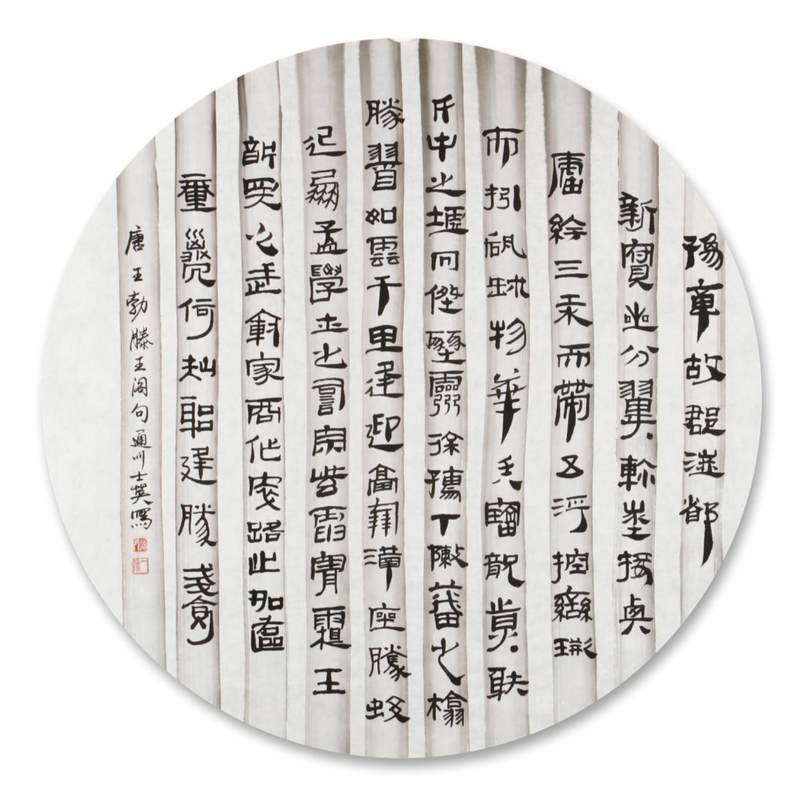 豫章故郡洪都
新府星分翼軫地接衡
廬襟三江而帶五湖控蠻荊
而引甌越物華天寶龍光射
斗牛之墟人傑地靈徐孺下陳蕃之榻
勝友如雲千里逢迎高朋滿座騰蛟
起鳳孟學士之詞宗紫電青霜王
將軍之武庫家君作宰路出名區
童子何知躬逢勝餞
唐王勃滕王阁句通川士英寫